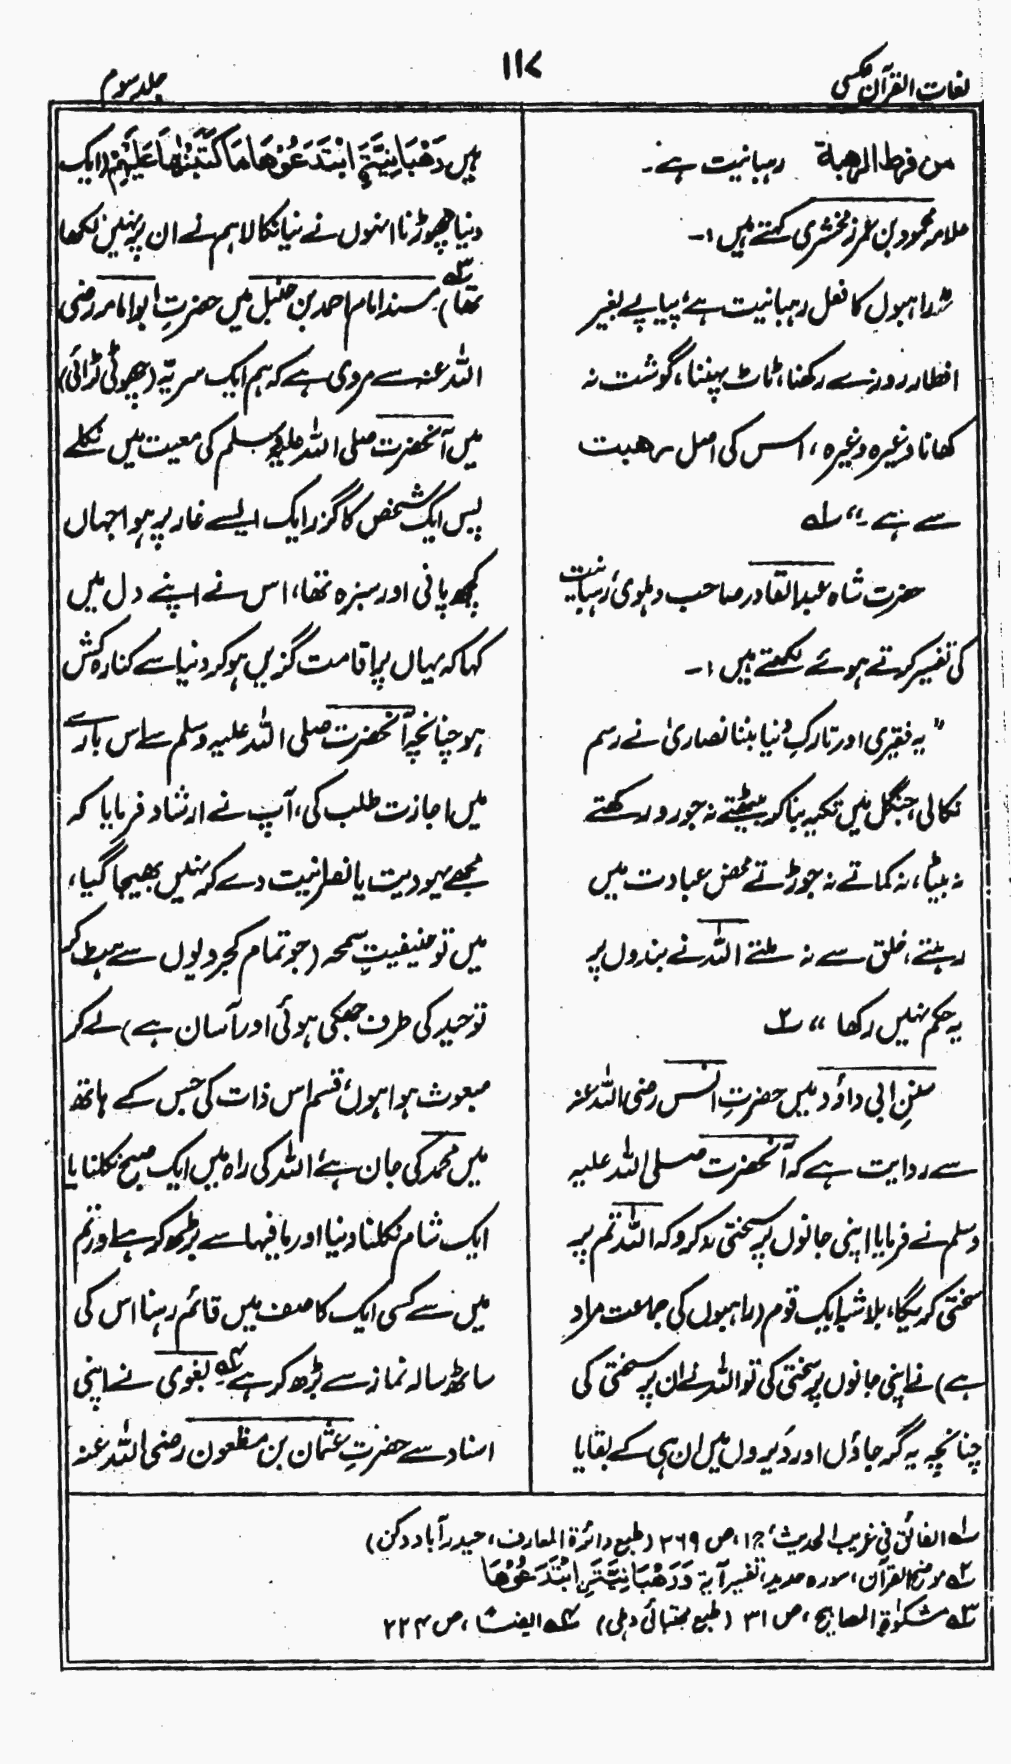 لغات القرآن عکسی
۱۱۷
جلد سوم
من فرط الرهبة رہبانیت ہے۔
علامہ محمود بن عمر زمخشری کہتے ہیں :۔
راہبوں کا فعل رہبانیت ہے پیاپے بغیر
افطار روزے رکھنا، ٹاٹ پہننا، گوشت نہ
کھانا وغیرہ وغیرہ، اس کی اصل رھبت
سے ہے۔“ ۱ه
حضرت شاہ عبدالقادر صاحب دہلوی رہبانیت
کی تفسیر کرتے ہوئے لکھتے ہیں :۔
”یہ فقیری اور تارکِ دنیا بننا نصاریٰ نے رسم
نکالی، جنگل میں تکیہ بنا کر بیٹھتے نہ جورو رکھتے
نہ بیٹا، نہ کماتے نہ جوڑتے محض عبادت میں
رہتے، خلق سے نہ ملتے اللہ نے بندوں پر
یہ حکم نہیں رکھا“ ۲ه
سننِ ابی داؤد میں حضرتِ انس رضی اللہ عنہ
سے روایت ہے کہ آنحضرت صلی اللہ علیہ
وسلم نے فرمایا اپنی جانوں پر سختی نہ کرو کہ اللہ تم پر
سختی کریگا، بلاشبہ ایک قوم (راہبوں کی جماعت مراد
ہے) نے اپنی جانوں پر سختی کی تو اللہ نے ان پر سختی کی
چنانچہ یہ گرجاؤں اور دَیروں میں ان ہی کے بقایا
ہیں رَهْبَانِيَّةً ابْتَدَعُوْهَا مَا كَتَبْنٰهَا عَلَيْهِمْ (ایک
دنیا چھوڑنا انہوں نے نیا نکالا ہم نے ان پر نہیں لکھا
تھا)۔ ۳ه مسند امام احمد بن حنبل میں حضرتِ ابو امامہ رضی
اللہ عنہ سے مروی ہے کہ ہم ایک سریّہ (چھوٹی لڑائی)
میں آنحضرت صلی اللہ علیہ وسلم کی معیت میں نکلے
پس ایک شخص کا گزر ایک ایسے غار پر ہوا جہاں
کچھ پانی اور سبزہ تھا، اس نے اپنے دل میں
کہا کہ یہاں پر اقامت گزیں ہو کر دنیا سے کنارہ کش
ہو چنانچہ آنحضرت صلی اللہ علیہ وسلم سے اس بارے
میں اجازت طلب کی، آپ نے ارشاد فرمایا کہ
مجھے یہودیت یا نصرانیت دے کر نہیں بھیجا گیا،
میں تو حنیفیتِ سمحہ (جو تمام کجرویوں سے ہٹ کر
توحید کی طرف جھکی ہوئی اور آسان ہے) لے کر
مبعوث ہوا ہوں، قسم اس ذات کی جس کے ہاتھ
میں محمد کی جان ہے اللہ کی راہ میں ایک صبح نکلنا یا
ایک شام نکلنا دنیا اور مافیہا سے بڑھ کر ہے اور تم
میں سے کسی ایک کا صف میں قائم رہنا اس کی
ساٹھ سالہ نماز سے بڑھ کر ہے ۴ه بغوی نے اپنی
اسناد سے حضرتِ عثمان بن مظعون رضی اللہ عنہ
۱ه الفائق فی غریب الحدیث، ج ۱، ص ۲۶۹ (طبع دائرۃ المعارف، حیدرآباد دکن)
۲ه موضح القرآن، سورہ حدید، تفسیر آیۃ وَرَهْبَانِيَّةَ نِ ابْتَدَعُوْهَا
۳ه مشکوٰۃ المصابیح، ص ۳۱ (طبع مجتبائی دہلی) ۴ه ایضًا، ص ۲۲۴